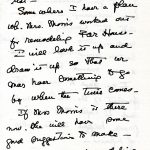 Some where I have a plan
Mrs. Morris worked out
for remodeling Farm House -
I will look it up and
draw it up so that we
may have something to go
by when the time comes.
If Mrs Morris is there
now. She will have some
good suggestions to make -